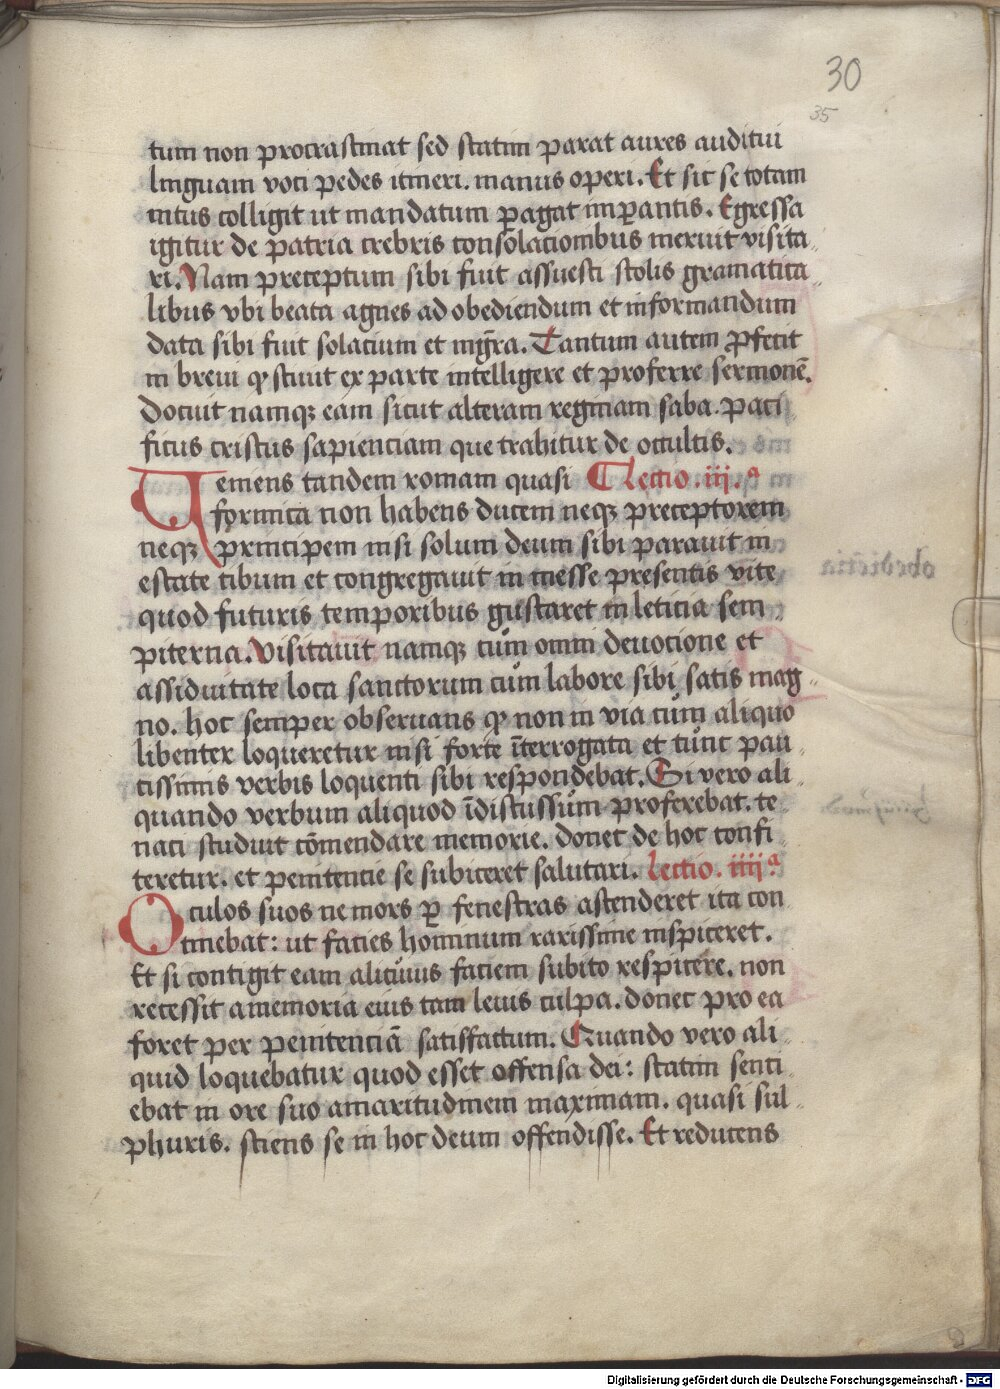 30
35
tum non procrastinat sed statim parat aures auditui
linguam voci pedes itineri. manus operi. Et sic se totam
intus colligit ut mandatum ꝑagat imꝑantis. Egressa
igitur de patria crebris consolacionibus meruit visita
ri. Nam preceptum sibi fuit assuesci scolis gramatica
libus vbi beata agnes ad obediendum et informandum
data sibi fuit solacium et mgr̄a. Tantum autem ꝓfecit
in breui qͥ sciuit ex parte intelligere et proferre sermonē.
Docuit namqꝫ eam sicut alteram reginam saba. paci
ficus cristus sapienciam que trahitur de occultis.
Uemens tandem romam quasi Lectio .iij.ᵃ
formica non habens ducem neqꝫ preceptorem
neqꝫ principem nisi solum deum sibi parauit in
estate cibum et congregauit in messe presentis vite
quod futuris temporibus gustaret in leticia sem
piterna. Visitauit namqꝫ cum omni deuocione et
assiduitate loca sanctorum cum labore sibi satis mag
no. hoc semper obseruans qͥ non in via cum aliquo
libenter loqueretur nisi forte īterrogata et tunc pau
cissimis verbis loquenti sibi respondebat. Si vero ali
quando verbum aliquod īdiscussum proferebat. te
naci studuit cōmendare memorie. donec de hoc confi
teretur. et penitencie se subiceret salutari. Lectio. iiij.ᵃ
Oculos suos ne mors ꝑ fenestras ascenderet ita con
tinebat: ut facies hominum rarissime inspiceret.
Et si contigit eam alicuius faciem subito respicere. non
recessit a memoria eius tam leuis culpa. donec pro ea
foret per penitenciā satisfactum. Quando vero ali
quid loquebatur quod esset offensa dei: statim senti
ebat in ore suo amaritudinem maximam. quasi sul
phuris. sciens se in hoc deum offendisse. Et reducens
Digitalisierung gefördert durch die Deutsche Forschungsgemeinschaft - DFG